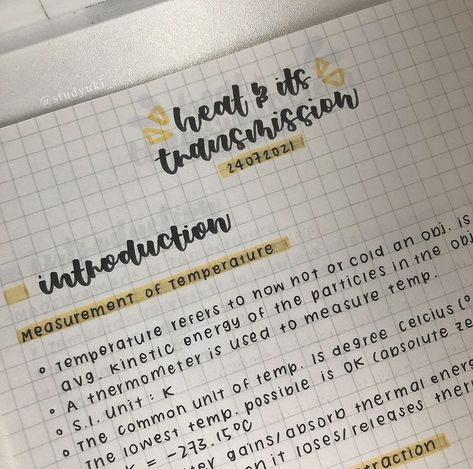 @studyuki_
heat & its
transmission
24072021
introduction
Measurement of Temperature
Temperature refers to how hot or cold an obj. is
avg. kinetic energy of the particles in the obj
A thermometer is used to measure temp.
S.I. unit : K
The common unit of temp. is degree Celcius (
The lowest temp. possible is 0K (absolute ze
K = -273.15°C
ter gains/absorb thermal ener
n it loses/releases ther
traction